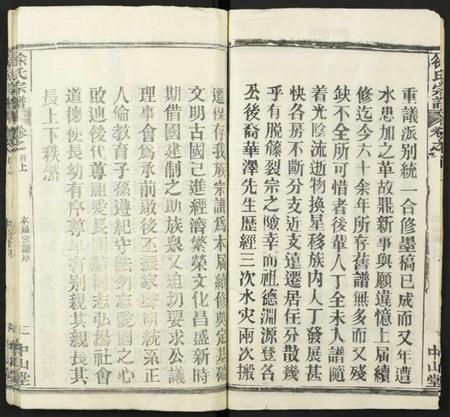 徐氏宗譜
重議派别統一合修墨稿已成而又年遭
水患加之革故鼎新事與願違憶上屆續
修迄今六十余年所存舊譜無多而又殘
缺不全所可惜者後輩人丁全未入譜隨
着光陰流逝物換星移族内人丁發展甚
快各房不斷分支近支遠遷居住分散幾
乎有脱節裂宗之險幸而祖德淵源登名
公後裔華澤先生歷經三次水灾兩次搬
中山堂
遷保存我族宗譜爲本屆續修奠定基礎
文明古國己進經濟繁榮文化昌盛新時
期借國建制之助族衆又迫切要求公議
理事會爲承前啟後丕振家聲明統系正
人倫教育子孫遵紀守法勿忘愛國之心
啟迪後代尊祖愛長 志弘揚社會
道德使長幼有序尊 有别親其親長其
長上下秩然
徐氏宗譜
卷之首上
本屆宗譜序
二
中山堂